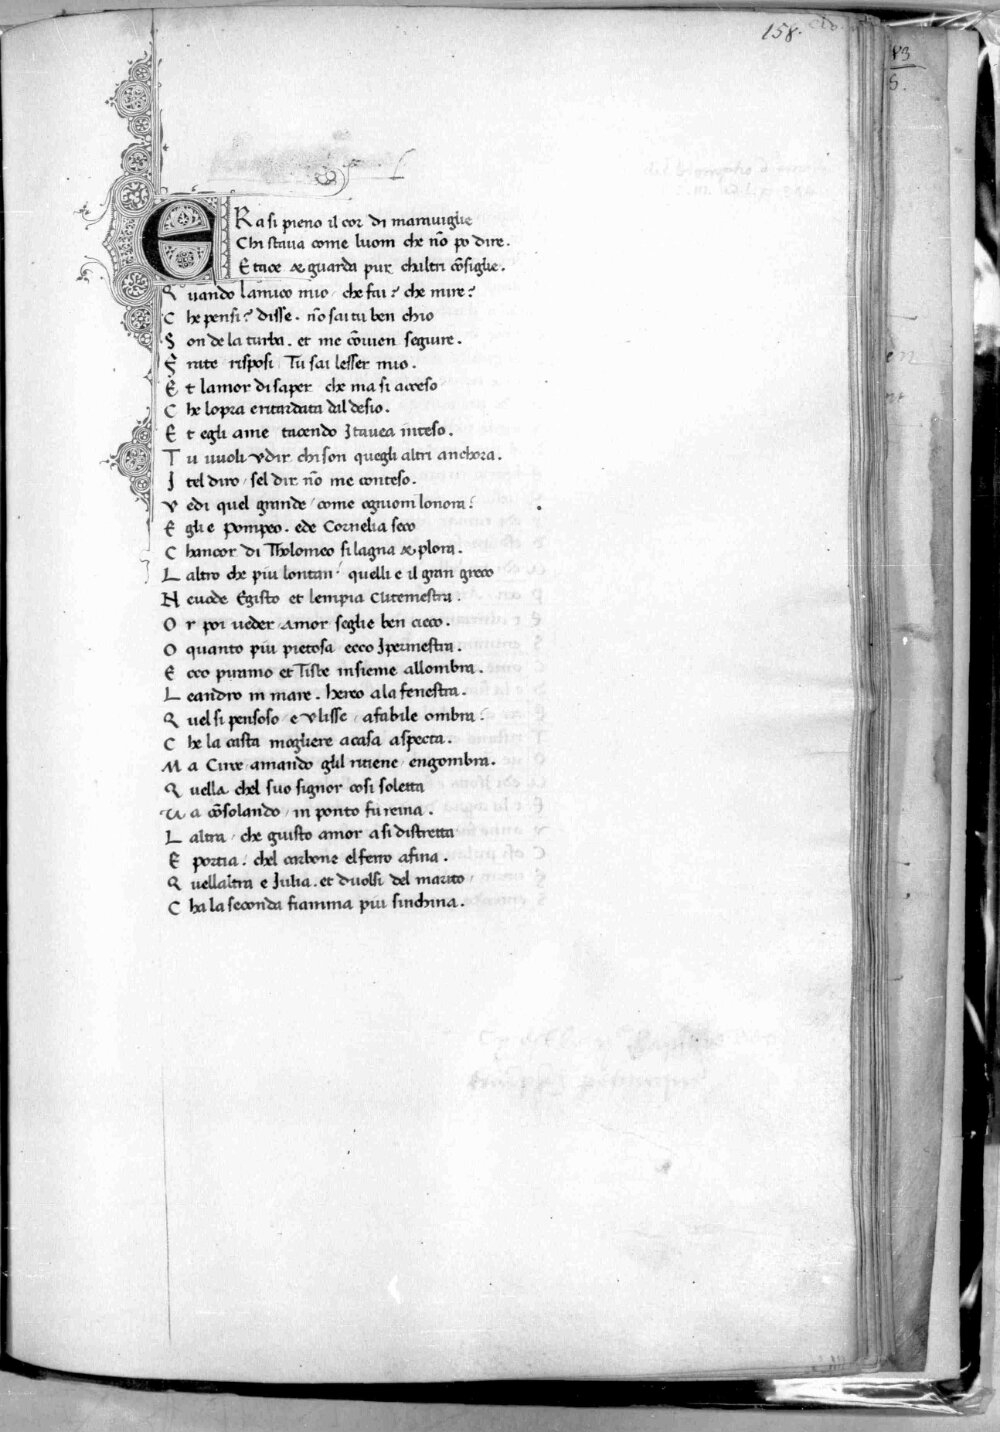 158.
ERa si pieno il cor di marauiglie
Chi staua come luom che nõ po dire.
E tace & guarda pur chaltri cõsiglie.
Quando lamico mio / che fai? che mire?
Che pensi? disse. nõ sai tu ben chio
Son de la turba. et me cõuien seguire.
Frate risposi / Tu sai lesser mio.
Et lamor di saper che ma si acceso
Che lopra e ritardata dal desio.
Et egli a me tacendo Itauea inteso.
Tu uuoli vdir chi son quegli altri anchora.
I tel diro / sel dir nõ me conteso.
Vedi quel grande / come ognuom lonora?
Egli e Pompeo. ed e Cornelia seco
Chancor di Tholomeo si lagna & plora.
Laltro che piu lontan / quelli e il gran greco
Ne uede Egisto et lempia Clitemestra.
Or poi ueder Amor segli e ben cieco.
O quanto piu pietosa ecco Ipermestra.
Ecco piramo et Tisbe insieme allombra.
Leandro in mare. hereo a la fenestra.
Quel si pensoso / e Vlisse / afabile ombra:
Che la casta mogliere a casa aspecta.
Ma Circe amando glil ritiene / engombra.
Quella chel suo signor cosi soletta
Va cõsolando / in ponto fu reina.
Laltra / che giusto amor a si distretta
E portia: chel carbone el ferro afina.
Quellaltra e Julia. et duolsi del marito
Cha la seconda fiamma piu sinchina.